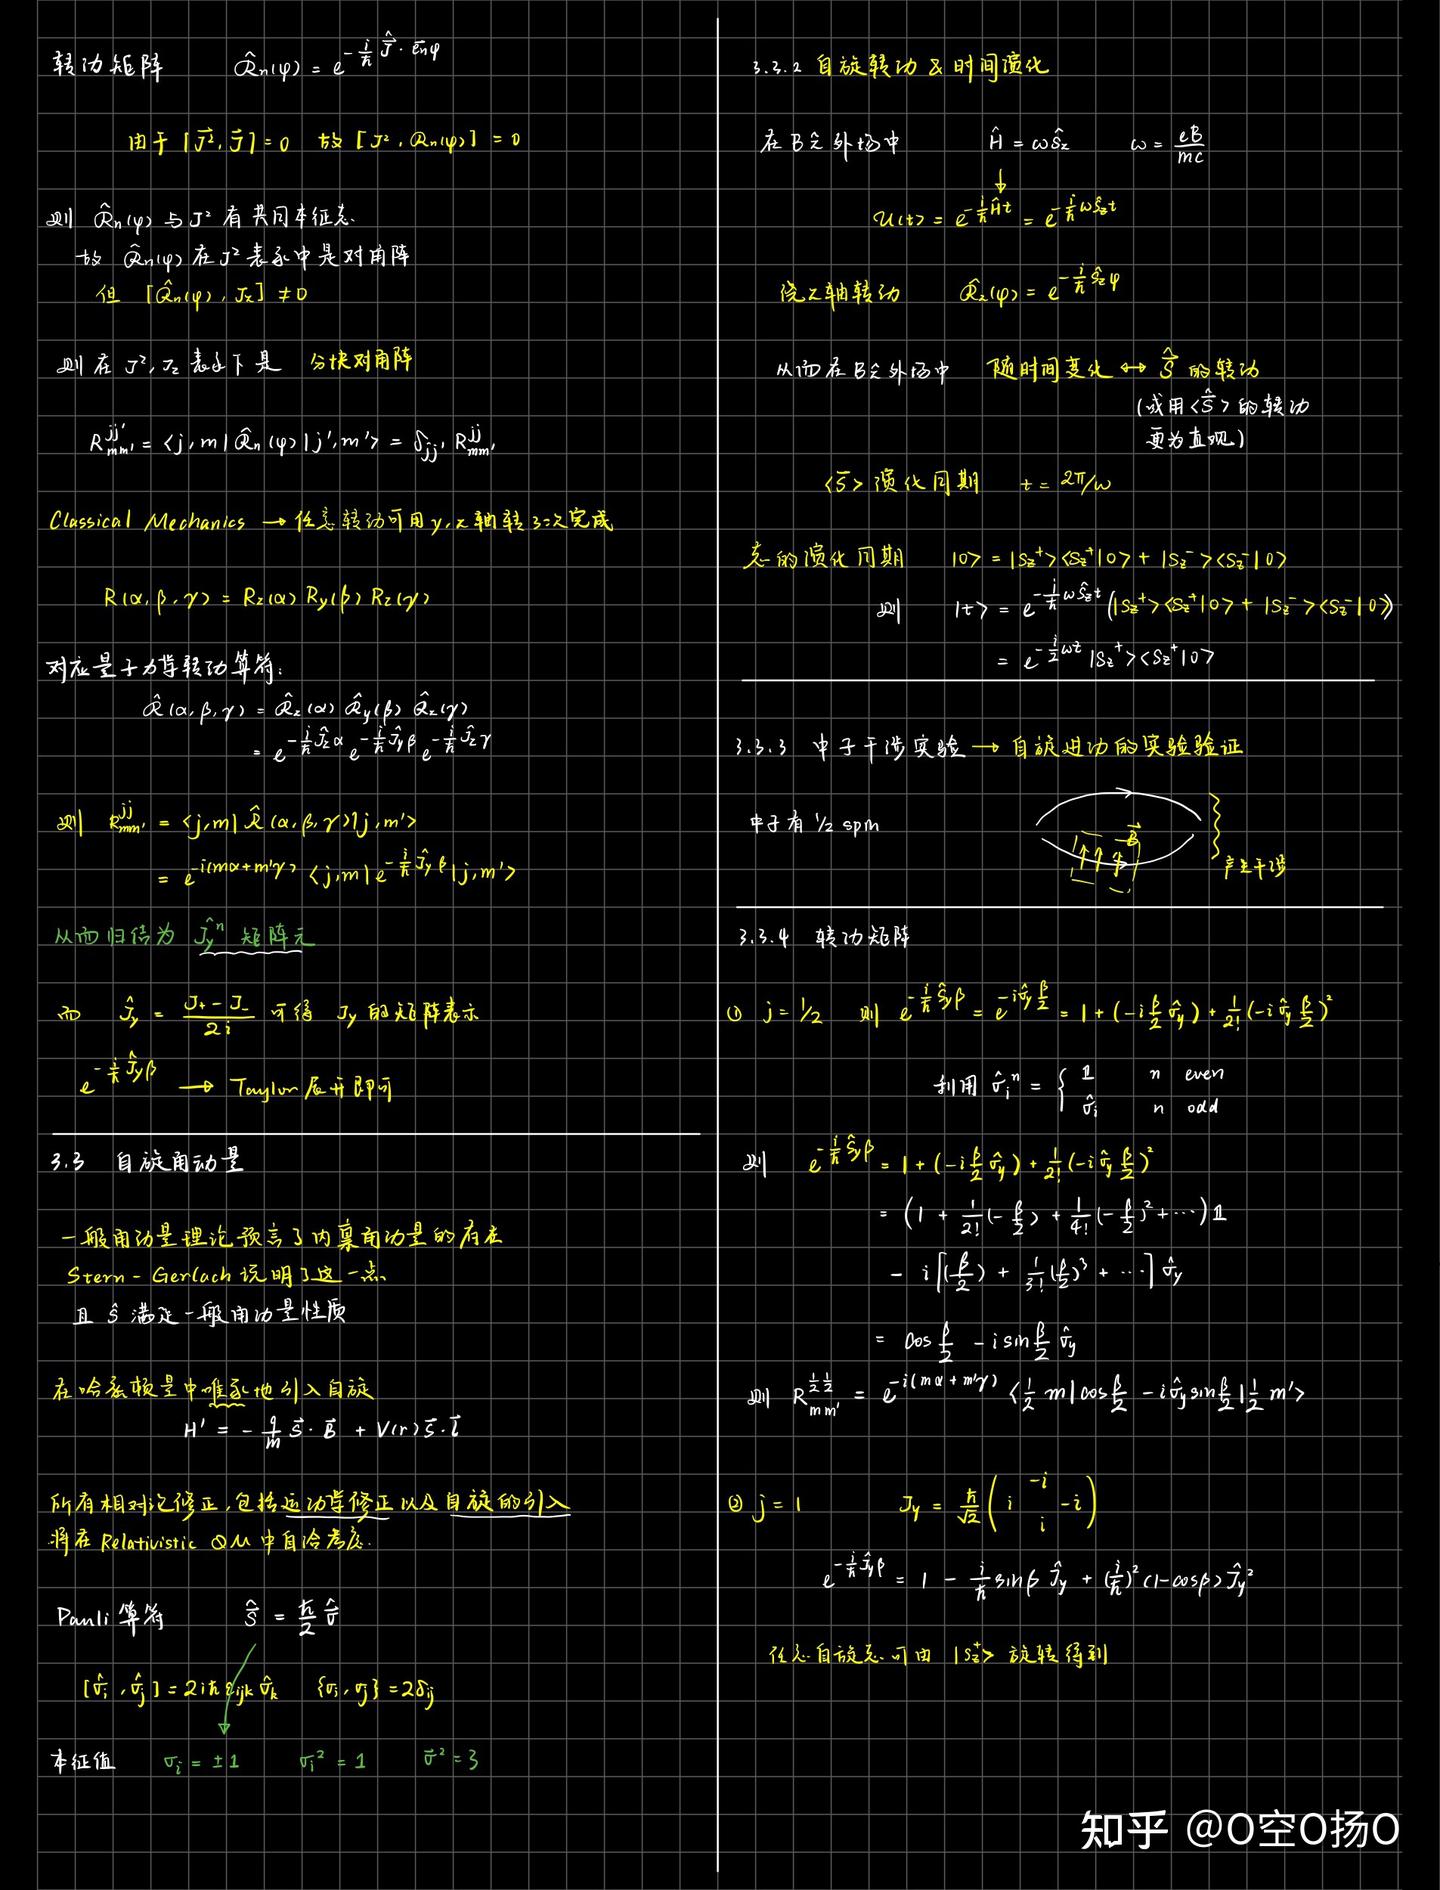 转动矩阵 R̂n(φ) = e^{-i/ħ Ĵ⃗·e⃗nφ}
由于 [J⃗², J⃗] = 0 故 [J², Rn(φ)] = 0
则 R̂n(φ) 与 J² 有共同本征态.
故 R̂n(φ) 在 J² 表象中是对角阵
但 [R̂n(φ), Jz] ≠ 0
则在 J², Jz 表象下是 分块对角阵
R^{jj'}_{mm'} = <j,m| R̂n(φ) |j',m'> = δ_{jj'} R^{jj}_{mm'}
Classical Mechanics → 任意转动可用 y,z 轴转 3 次完成
R(α,β,γ) = Rz(α) Ry(β) Rz(γ)
对应量子力学转动算符:
R̂(α,β,γ) = R̂z(α) R̂y(β) R̂z(γ)
= e^{-i/ħ Ĵz α} e^{-i/ħ Ĵy β} e^{-i/ħ Ĵz γ}
则 R^{jj}_{mm'} = <j,m| R̂(α,β,γ) |j,m'>
= e^{-i(mα+m'γ)} <j,m| e^{-i/ħ Ĵy β} |j,m'>
从而归结为 Ĵy^n 矩阵元
而 Ĵy = (J₊ - J₋)/2i 可得 Jy 的矩阵表示
e^{-i/ħ Ĵy β} → Taylor 展开即可
3.3 自旋角动量
一般角动量理论预言了内禀角动量的存在
Stern - Gerlach 说明了这一点
且 ŝ 满足一般角动量性质
在哈密顿量中唯象地引入自旋
H' = - q/m S⃗·B⃗ + V(r) S⃗·L⃗
所有相对论修正,包括运动学修正以及自旋的引入
将在 Relativistic QM 中自洽考虑.
Pauli 算符 Ŝ⃗ = ħ/2 σ̂⃗
[σ̂i, σ̂j] = 2iħ εijk σ̂k {σi, σj} = 2δij
本征值 σi = ±1 σi² = 1 σ⃗² = 3
3.3.2 自旋转动 & 时间演化
在 Bẑ 外场中 Ĥ = ωŜz ω = eB/mc
U(t) = e^{-i/ħ Ĥt} = e^{-i/ħ ωŜz t}
绕 z 轴转动 R̂z(φ) = e^{-i/ħ Ŝz φ}
从而在 Bẑ 外场中 随时间变化 ↔ Ŝ⃗ 的转动
(或用 <Ŝ⃗> 的转动
更为直观)
<S⃗> 演化周期 t = 2π/ω
态的演化周期 |0> = |Sz⁺><Sz⁺|0> + |Sz⁻><Sz⁻|0>
则 |t> = e^{-i/ħ ωŜz t} (|Sz⁺><Sz⁺|0> + |Sz⁻><Sz⁻|0>)
= e^{-i/2 ωt} |Sz⁺><Sz⁺|0>
3.3.3 中子干涉实验 → 自旋进动的实验验证
中子有 1/2 spin
B⃗
产生干涉
3.3.4 转动矩阵
① j = 1/2 则 e^{-i/ħ Ŝy β} = e^{-iσ̂y β/2} = 1 + (-i β/2 σ̂y) + 1/2! (-i σ̂y β/2)²
利用 σ̂i^n = { 𝟙 n even
σ̂i n odd
则 e^{-i/ħ Ŝy β} = 1 + (-i β/2 σ̂y) + 1/2! (-i σ̂y β/2)²
= (1 + 1/2! (-β/2) + 1/4! (-β/2)² + ⋯) 𝟙
- i [(β/2) + 1/3! (β/2)³ + ⋯] σ̂y
= cos β/2 - i sin β/2 σ̂y
则 R^{1/2 1/2}_{mm'} = e^{-i(mα+m'γ)} <1/2 m| cos β/2 - iσ̂y sin β/2 |1/2 m'>
② j = 1 Jy = ħ/√2 ( -i
i -i
i )
e^{-i/ħ Ĵy β} = 1 - i/ħ sinβ Ĵy + (i/ħ)² (1-cosβ) Ĵy²
任意自旋态可由 |Sz⁺> 旋转得到
知乎 @O空O扬O